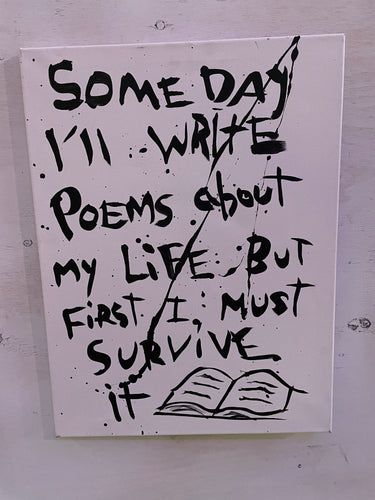 SOME DAY
I'll WRITE
POEMS about
my LiFE. BUT
FiRST I MUST
SURViVE
it